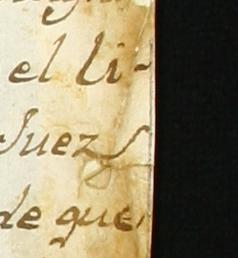 el li-
Juez
de que